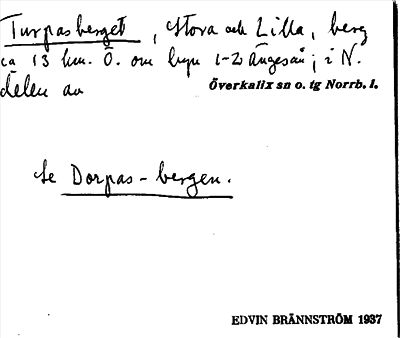 Turpasberget, Stora och Lilla, berg
ca 13 km. Ö. om byn 1-2 Ängesån; i N.
delen av Överkalix sn o. tg Norrb. l.
Se Dorpas-bergen.
EDVIN BRÄNNSTRÖM 1937